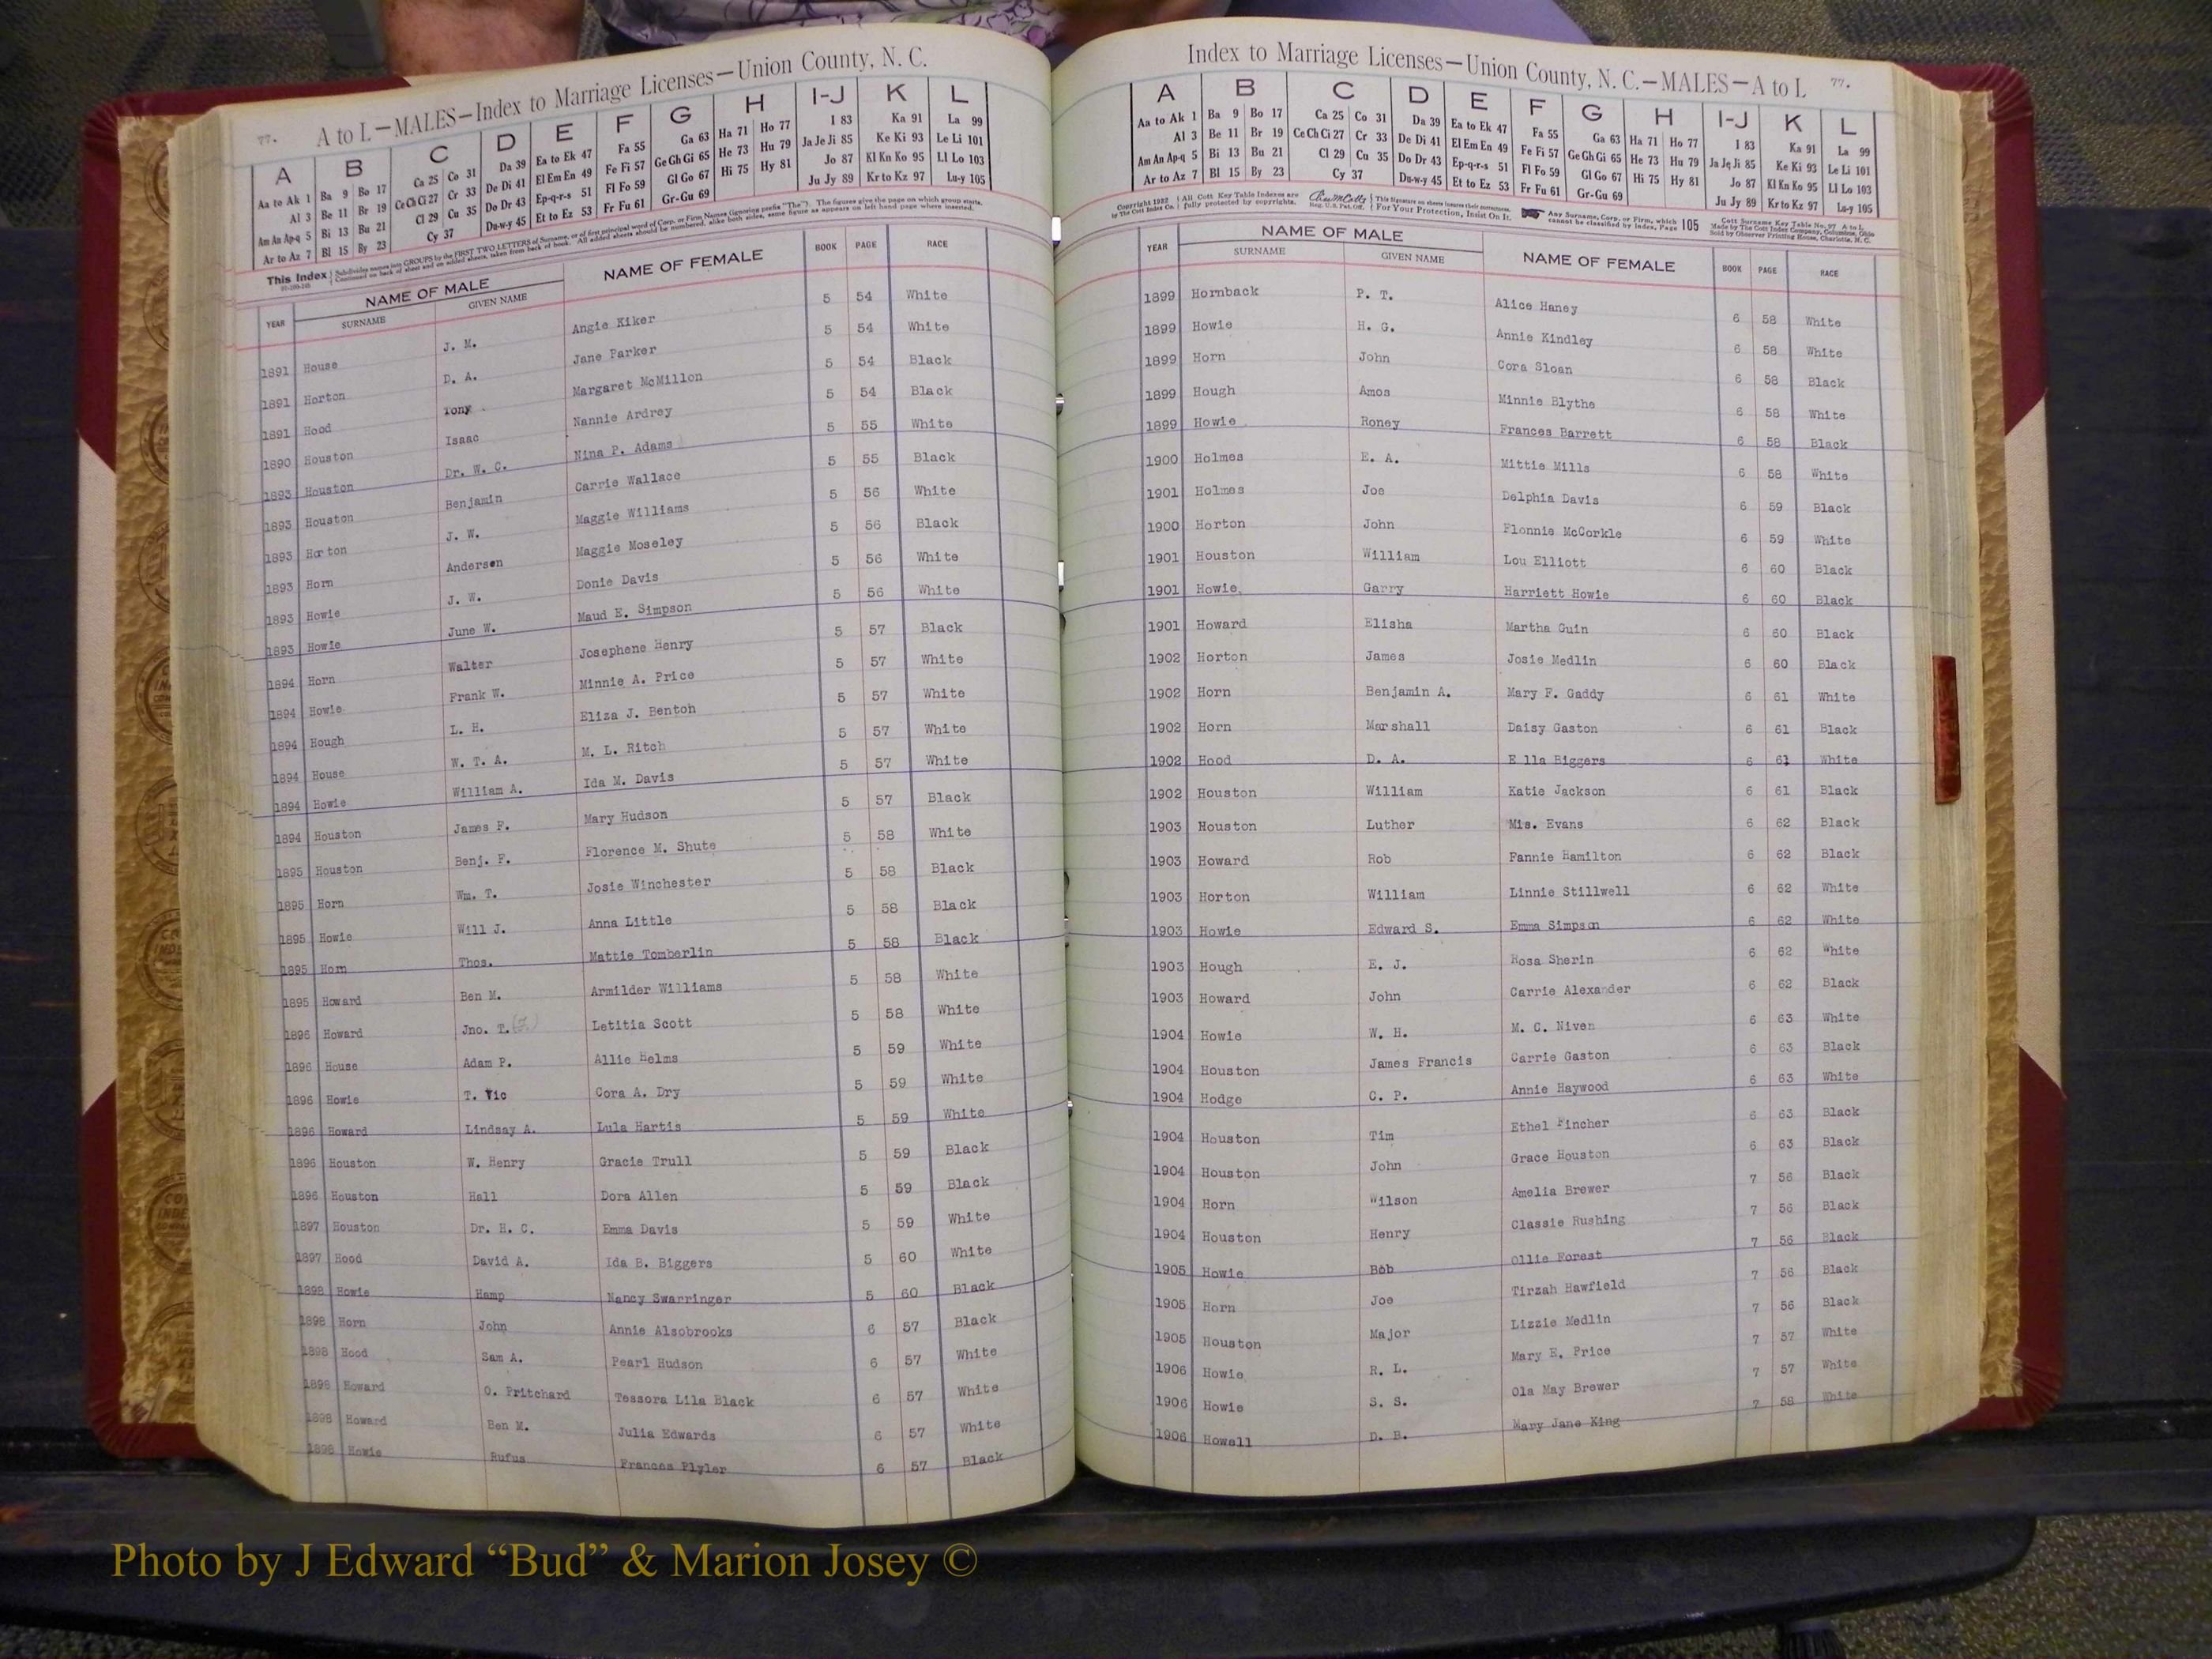 77. A to L—MALES—Index to Marriage Licenses—Union County, N. C.
A B C D E F G H I-J K L
Aa to Ak 1 Ba 9 Bo 17 Ca 25 Co 31 Da 39 Ea to Ek 47 Fa 55 Ga 63 Ha 71 Ho 77 I 83 Ka 91 La 99
Al 3 Be 11 Br 19 Ce Ch Ci 27 Cr 33 De Di 41 El Em En 49 Fe Fi 57 Ge Gh Gi 65 He 73 Hu 79 Ja Je Ji 85 Ke Ki 93 Le Li 101
Am An Ap-q 5 Bi 13 Bu 21 Cl 29 Cu 35 Do Dr 43 Ep-q-r-s 51 Fl Fo 59 Gl Go 67 Hi 75 Hy 81 Jo 87 Kl Kn Ko 95 Ll Lo 103
Ar to Az 7 Bl 15 By 23 Cy 37 Du-w-y 45 Et to Ez 53 Fr Fu 61 Gr-Gu 69 Ju Jy 89 Kr to Kz 97 Lu-y 105
This Index Subdivides names into GROUPS by the FIRST TWO LETTERS of Surname, or of first principal word of Corp. or Firm Names (ignoring prefix "The"). The figures give the page on which group starts.
Continued on back of sheet and on added sheets, taken from back of book. All added sheets should be numbered, alike both sides, same figure as appears on left hand page where inserted.
YEAR NAME OF MALE SURNAME GIVEN NAME NAME OF FEMALE BOOK PAGE RACE
1891 House J. M. Angie Kiker 5 54 White
1891 Horton D. A. Jane Parker 5 54 White
1891 Hood Tony Margaret McMillon 5 54 Black
1890 Houston Isaac Nannie Ardrey 5 54 Black
1893 Houston Dr. W. C. Nina P. Adams 5 55 White
1893 Houston Benjamin Carrie Wallace 5 55 Black
1893 Horton J. W. Maggie Williams 5 56 White
1893 Horn Anderson Maggie Moseley 5 56 Black
1893 Howie J. W. Donie Davis 5 56 White
1893 Howie June W. Maud E. Simpson 5 56 White
1894 Horn Walter Josephene Henry 5 57 Black
1894 Howie Frank W. Minnie A. Price 5 57 White
1894 Hough L. H. Eliza J. Bentoh 5 57 White
1894 House W. T. A. M. L. Ritch 5 57 White
1894 Howie William A. Ida M. Davis 5 57 White
1894 Houston James F. Mary Hudson 5 57 Black
1895 Houston Benj. F. Florence M. Shute 5 58 White
1895 Horn Wm. T. Josie Winchester 5 58 Black
1895 Howie Will J. Anna Little 5 58 Black
1895 Horn Thos. Mattie Tomberlin 5 58 Black
1895 Howard Ben M. Armilder Williams 5 58 White
1896 Howard Jno. T. Letitia Scott 5 58 White
1896 House Adam P. Allie Helms 5 59 White
1896 Howie T. Vic Cora A. Dry 5 59 White
1896 Howard Lindsay A. Lula Hartis 5 59 White
1896 Houston W. Henry Gracie Trull 5 59 Black
1896 Houston Hall Dora Allen 5 59 Black
1897 Houston Dr. H. C. Emma Davis 5 59 White
1897 Hood David A. Ida B. Biggers 5 60 White
1898 Howie Hamp Nancy Swarringer 5 60 Black
1898 Horn John Annie Alsobrooks 6 57 Black
1898 Hood Sam A. Pearl Hudson 6 57 White
1898 Howard O. Pritchard Tessora Lila Black 6 57 White
1898 Howard Ben M. Julia Edwards 6 57 White
1898 Howie Rufus Frances Plyler 6 57 Black
Index to Marriage Licenses—Union County, N. C.—MALES—A to L 77.
A B C D E F G H I-J K L
Aa to Ak 1 Ba 9 Bo 17 Ca 25 Co 31 Da 39 Ea to Ek 47 Fa 55 Ga 63 Ha 71 Ho 77 I 83 Ka 91 La 99
Al 3 Be 11 Br 19 Ce Ch Ci 27 Cr 33 De Di 41 El Em En 49 Fe Fi 57 Ge Gh Gi 65 He 73 Hu 79 Ja Je Ji 85 Ke Ki 93 Le Li 101
Am An Ap-q 5 Bi 13 Bu 21 Cl 29 Cu 35 Do Dr 43 Ep-q-r-s 51 Fl Fo 59 Gl Go 67 Hi 75 Hy 81 Jo 87 Kl Kn Ko 95 Ll Lo 103
Ar to Az 7 Bl 15 By 23 Cy 37 Du-w-y 45 Et to Ez 53 Fr Fu 61 Gr-Gu 69 Ju Jy 89 Kr to Kz 97 Lu-y 105
Copyright 1932 by The Cott Index Co. All Cott Key Table Indexes are fully protected by copyrights. Reg. U.S. Pat. Off. This Signature on sheets insures their genuineness. For Your Protection, Insist On It. Any Surname, Corp. or Firm, which cannot be classified by Index, Page 105 Cott Surname Key Table No. 97 A to L Made by The Cott Index Company, Columbus, Ohio Sold by Observer Printing House, Charlotte, N. C.
YEAR NAME OF MALE SURNAME GIVEN NAME NAME OF FEMALE BOOK PAGE RACE
1899 Hornback P. T. Alice Haney 6 58 White
1899 Howie H. G. Annie Kindley 6 58 White
1899 Horn John Cora Sloan 6 58 Black
1899 Hough Amos Minnie Blythe 6 58 White
1899 Howie Roney Frances Barrett 6 58 Black
1900 Holmes E. A. Mittie Mills 6 58 White
1901 Holmes Joe Delphia Davis 6 59 Black
1900 Horton John Flonnie McCorkle 6 59 White
1901 Houston William Lou Elliott 6 60 Black
1901 Howie Garry Harriett Howie 6 60 Black
1901 Howard Elisha Martha Guin 6 60 Black
1902 Horton James Josie Medlin 6 60 Black
1902 Horn Benjamin A. Mary F. Gaddy 6 61 White
1902 Horn Marshall Daisy Gaston 6 61 Black
1902 Hood D. A. Ella Biggers 6 61 White
1902 Houston William Katie Jackson 6 61 Black
1903 Houston Luther Mis. Evans 6 62 Black
1903 Howard Rob Fannie Hamilton 6 62 Black
1903 Horton William Linnie Stillwell 6 62 White
1903 Howie Edward S. Emma Simpson 6 62 White
1903 Hough E. J. Rosa Sherin 6 62 White
1903 Howard John Carrie Alexander 6 62 Black
1904 Howie W. H. M. C. Niven 6 63 White
1904 Houston James Francis Carrie Gaston 6 63 Black
1904 Hodge C. P. Annie Haywood 6 63 White
1904 Houston Tim Ethel Fincher 6 63 Black
1904 Houston John Grace Houston 6 63 Black
1904 Horn Wilson Amelia Brewer 7 56 Black
1904 Houston Henry Classie Rushing 7 56 Black
1905 Howie Bob Ollie Forest 7 56 Black
1905 Horn Joe Tirzah Hawfield 7 56 Black
1905 Houston Major Lizzie Medlin 7 56 Black
1906 Howie R. L. Mary E. Price 7 57 White
1906 Howie S. S. Ola May Brewer 7 57 White
1906 Howell D. B. Mary Jane King 7 58 White
Photo by J Edward “Bud” & Marion Josey ©